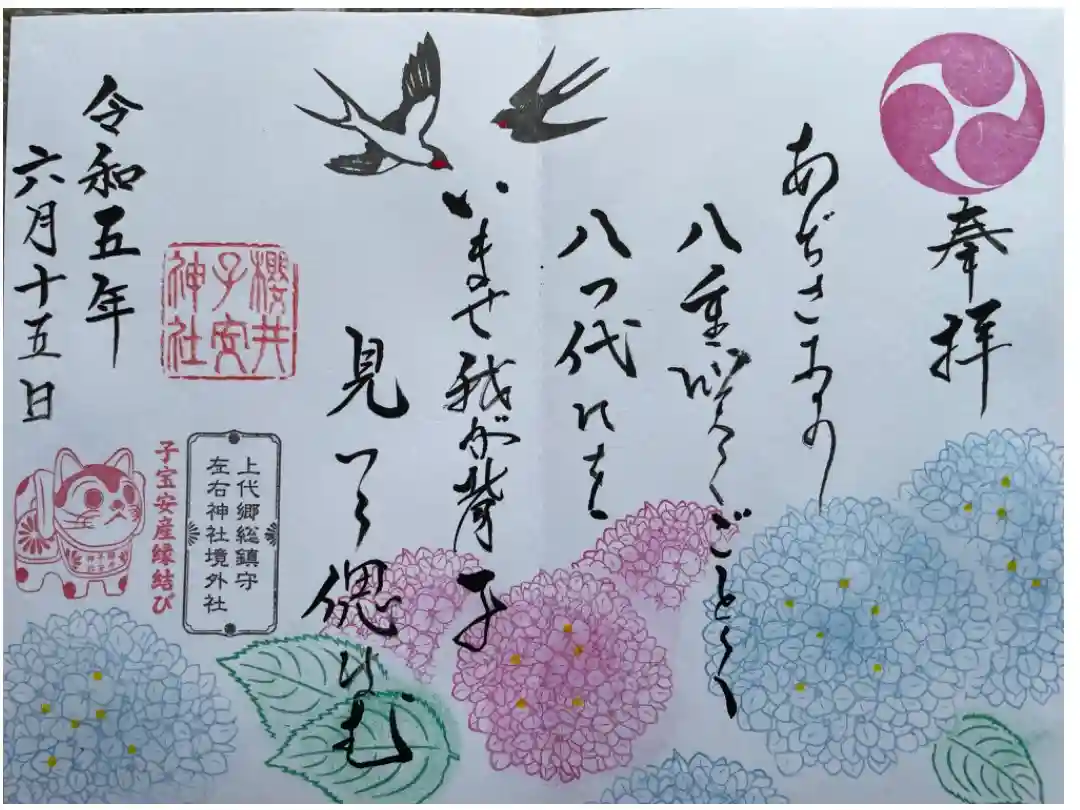 奉拝
あぢさゐの
八重咲くごとく
八つ代にを
いませ我が背子
見つゝ偲はむ
櫻井
子安
神社
上代郷総鎮守
左右神社境外社
子宝安産縁結び
令和五年
六月十五日